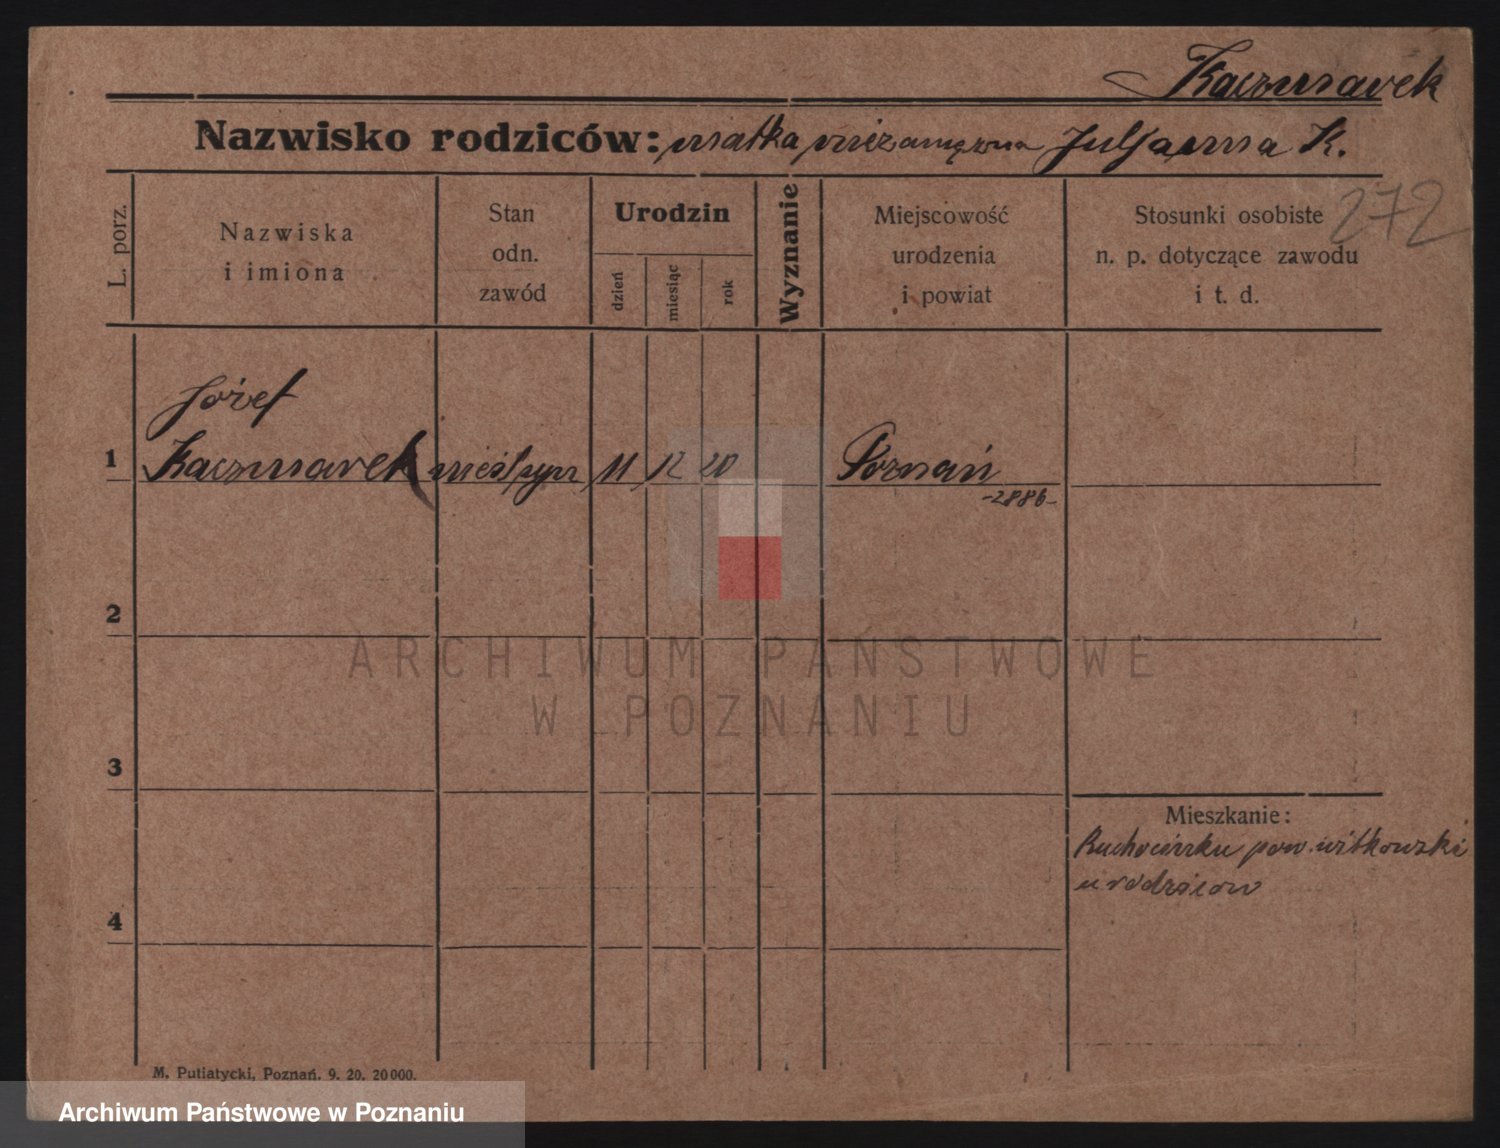 Kaczmarek
Nazwisko rodziców: matka niezamężna Juljanna K.
272
L. porz.
Nazwiska
i imiona
Stan
odn.
zawód
Urodzin
dzień
miesiąc
rok
Wyznanie
Miejscowość
urodzenia
i powiat
Stosunki osobiste
n. p. dotyczące zawodu
i t. d.
Józef
1 Kaczmarek nieśl. syn 11 12 20 Poznań
-2886-
2
ARCHIWUM PAŃSTWOWE
W POZNANIU
3
Mieszkanie:
Ruchocinku pow. witkowski
u rodziców
4
M. Putiatycki, Poznań. 9. 20. 20000.
Archiwum Państwowe w Poznaniu